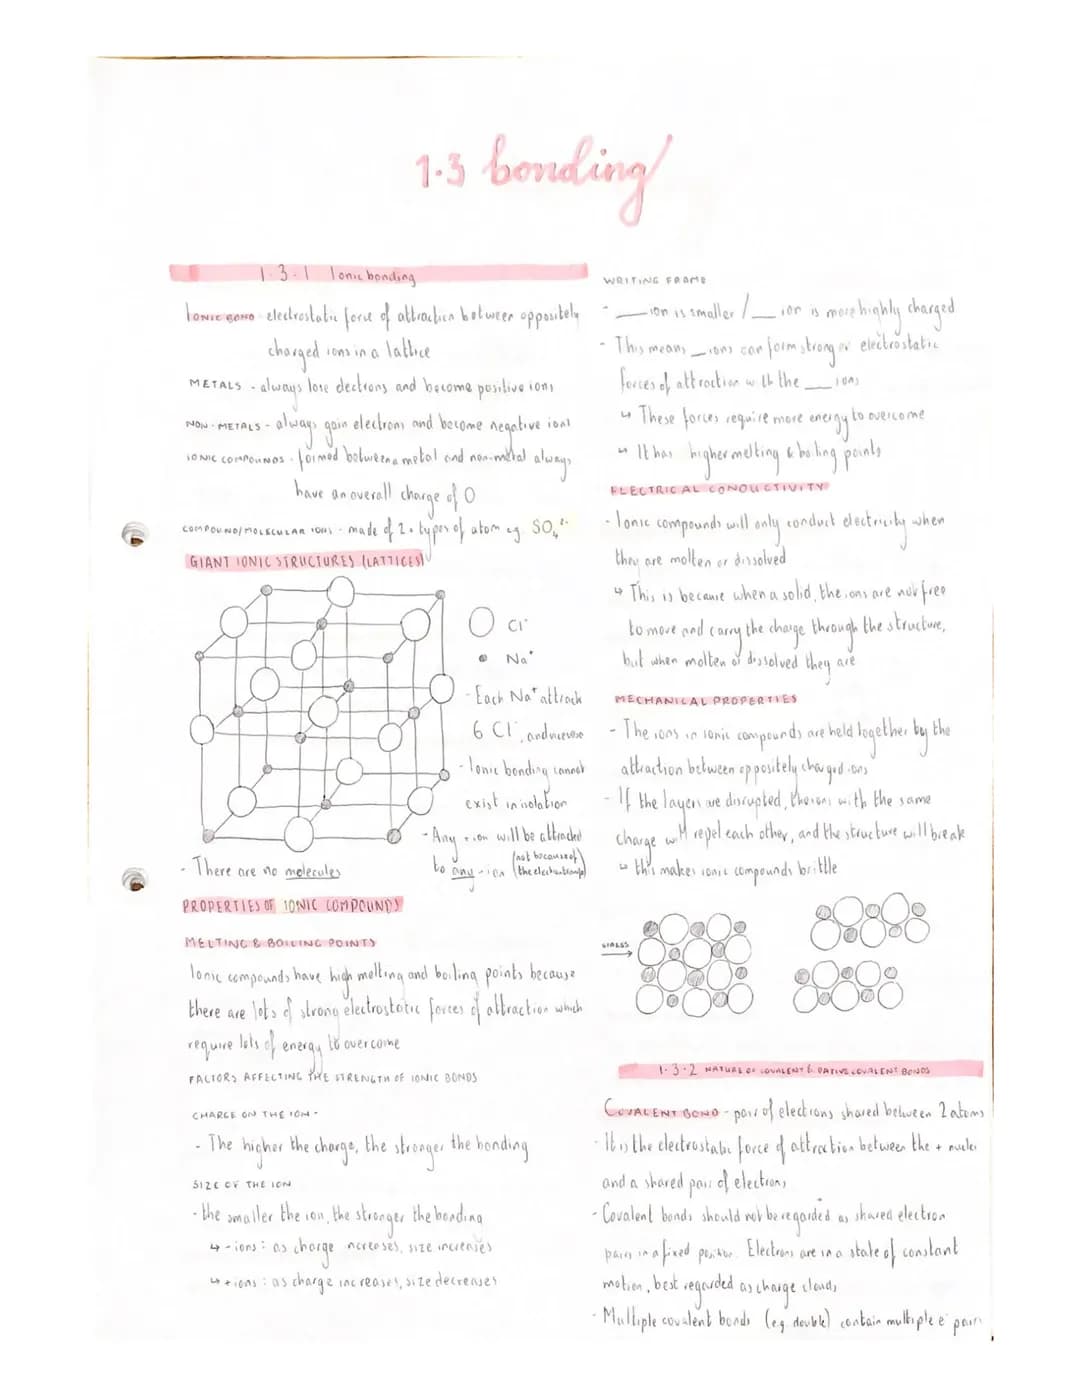 1.3 bonding
1.3.1 Ionic bonding
IONIC BOND - electrostatic force of attraction between oppositely
charged ions in a lattice
METALS - always lose electrons and become positive ions
NON-METALS - always gain electrons and become negative ions
IONIC COMPOUNDS - formed between a metal and non-metal always
have an overall charge of 0
COMPOUND/MOLECULAR IONS - made of 2+ types of atom eg. SO₄²⁻
GIANT IONIC STRUCTURES (LATTICES)
Cl⁻
Na⁺
- Each Na⁺ attracts
6 Cl⁻, and vice versa
- Ionic bonding cannot
exist in isolation
- Any + ion will be attracted
to any - ion (not because of the electron transfer)
- There are no molecules
PROPERTIES OF IONIC COMPOUNDS
MELTING & BOILING POINTS
Ionic compounds have high melting and boiling points because
there are lots of strong electrostatic forces of attraction which
require lots of energy to overcome
FACTORS AFFECTING THE STRENGTH OF IONIC BONDS
CHARGE ON THE ION -
- The higher the charge, the stronger the bonding
SIZE OF THE ION
- the smaller the ion, the stronger the bonding
↳ - ions: as charge increases, size increases
↳ + ions: as charge increases, size decreases
WRITING FRAME
- ___ ion is smaller / ___ ion is more highly charged
- This means ___ ions can form stronger electrostatic
forces of attraction with the ___ ions
↳ These forces require more energy to overcome
↳ It has higher melting & boiling points
ELECTRICAL CONDUCTIVITY
- Ionic compounds will only conduct electricity when
they are molten or dissolved
↳ This is because when a solid, the ions are not free
to move and carry the charge through the structure,
but when molten or dissolved they are
MECHANICAL PROPERTIES
- The ions in ionic compounds are held together by the
attraction between oppositely charged ions
- If the layers are disrupted, the ions with the same
charge will repel each other, and the structure will break
↳ this makes ionic compounds brittle
STRESS
1.3.2 NATURE OF COVALENT & DATIVE COVALENT BONDS
COVALENT BOND - pair of electrons shared between 2 atoms
- It is the electrostatic force of attraction between the + nuclei
and a shared pair of electrons
- Covalent bonds should not be regarded as shared electron
pairs in a fixed position. Electrons are in a state of constant
motion, best regarded as charge clouds
- Multiple covalent bonds (e.g. double) contain multiple e⁻ pairs